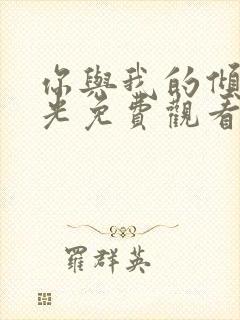 你與我的傾
光免費觀看
羅群英